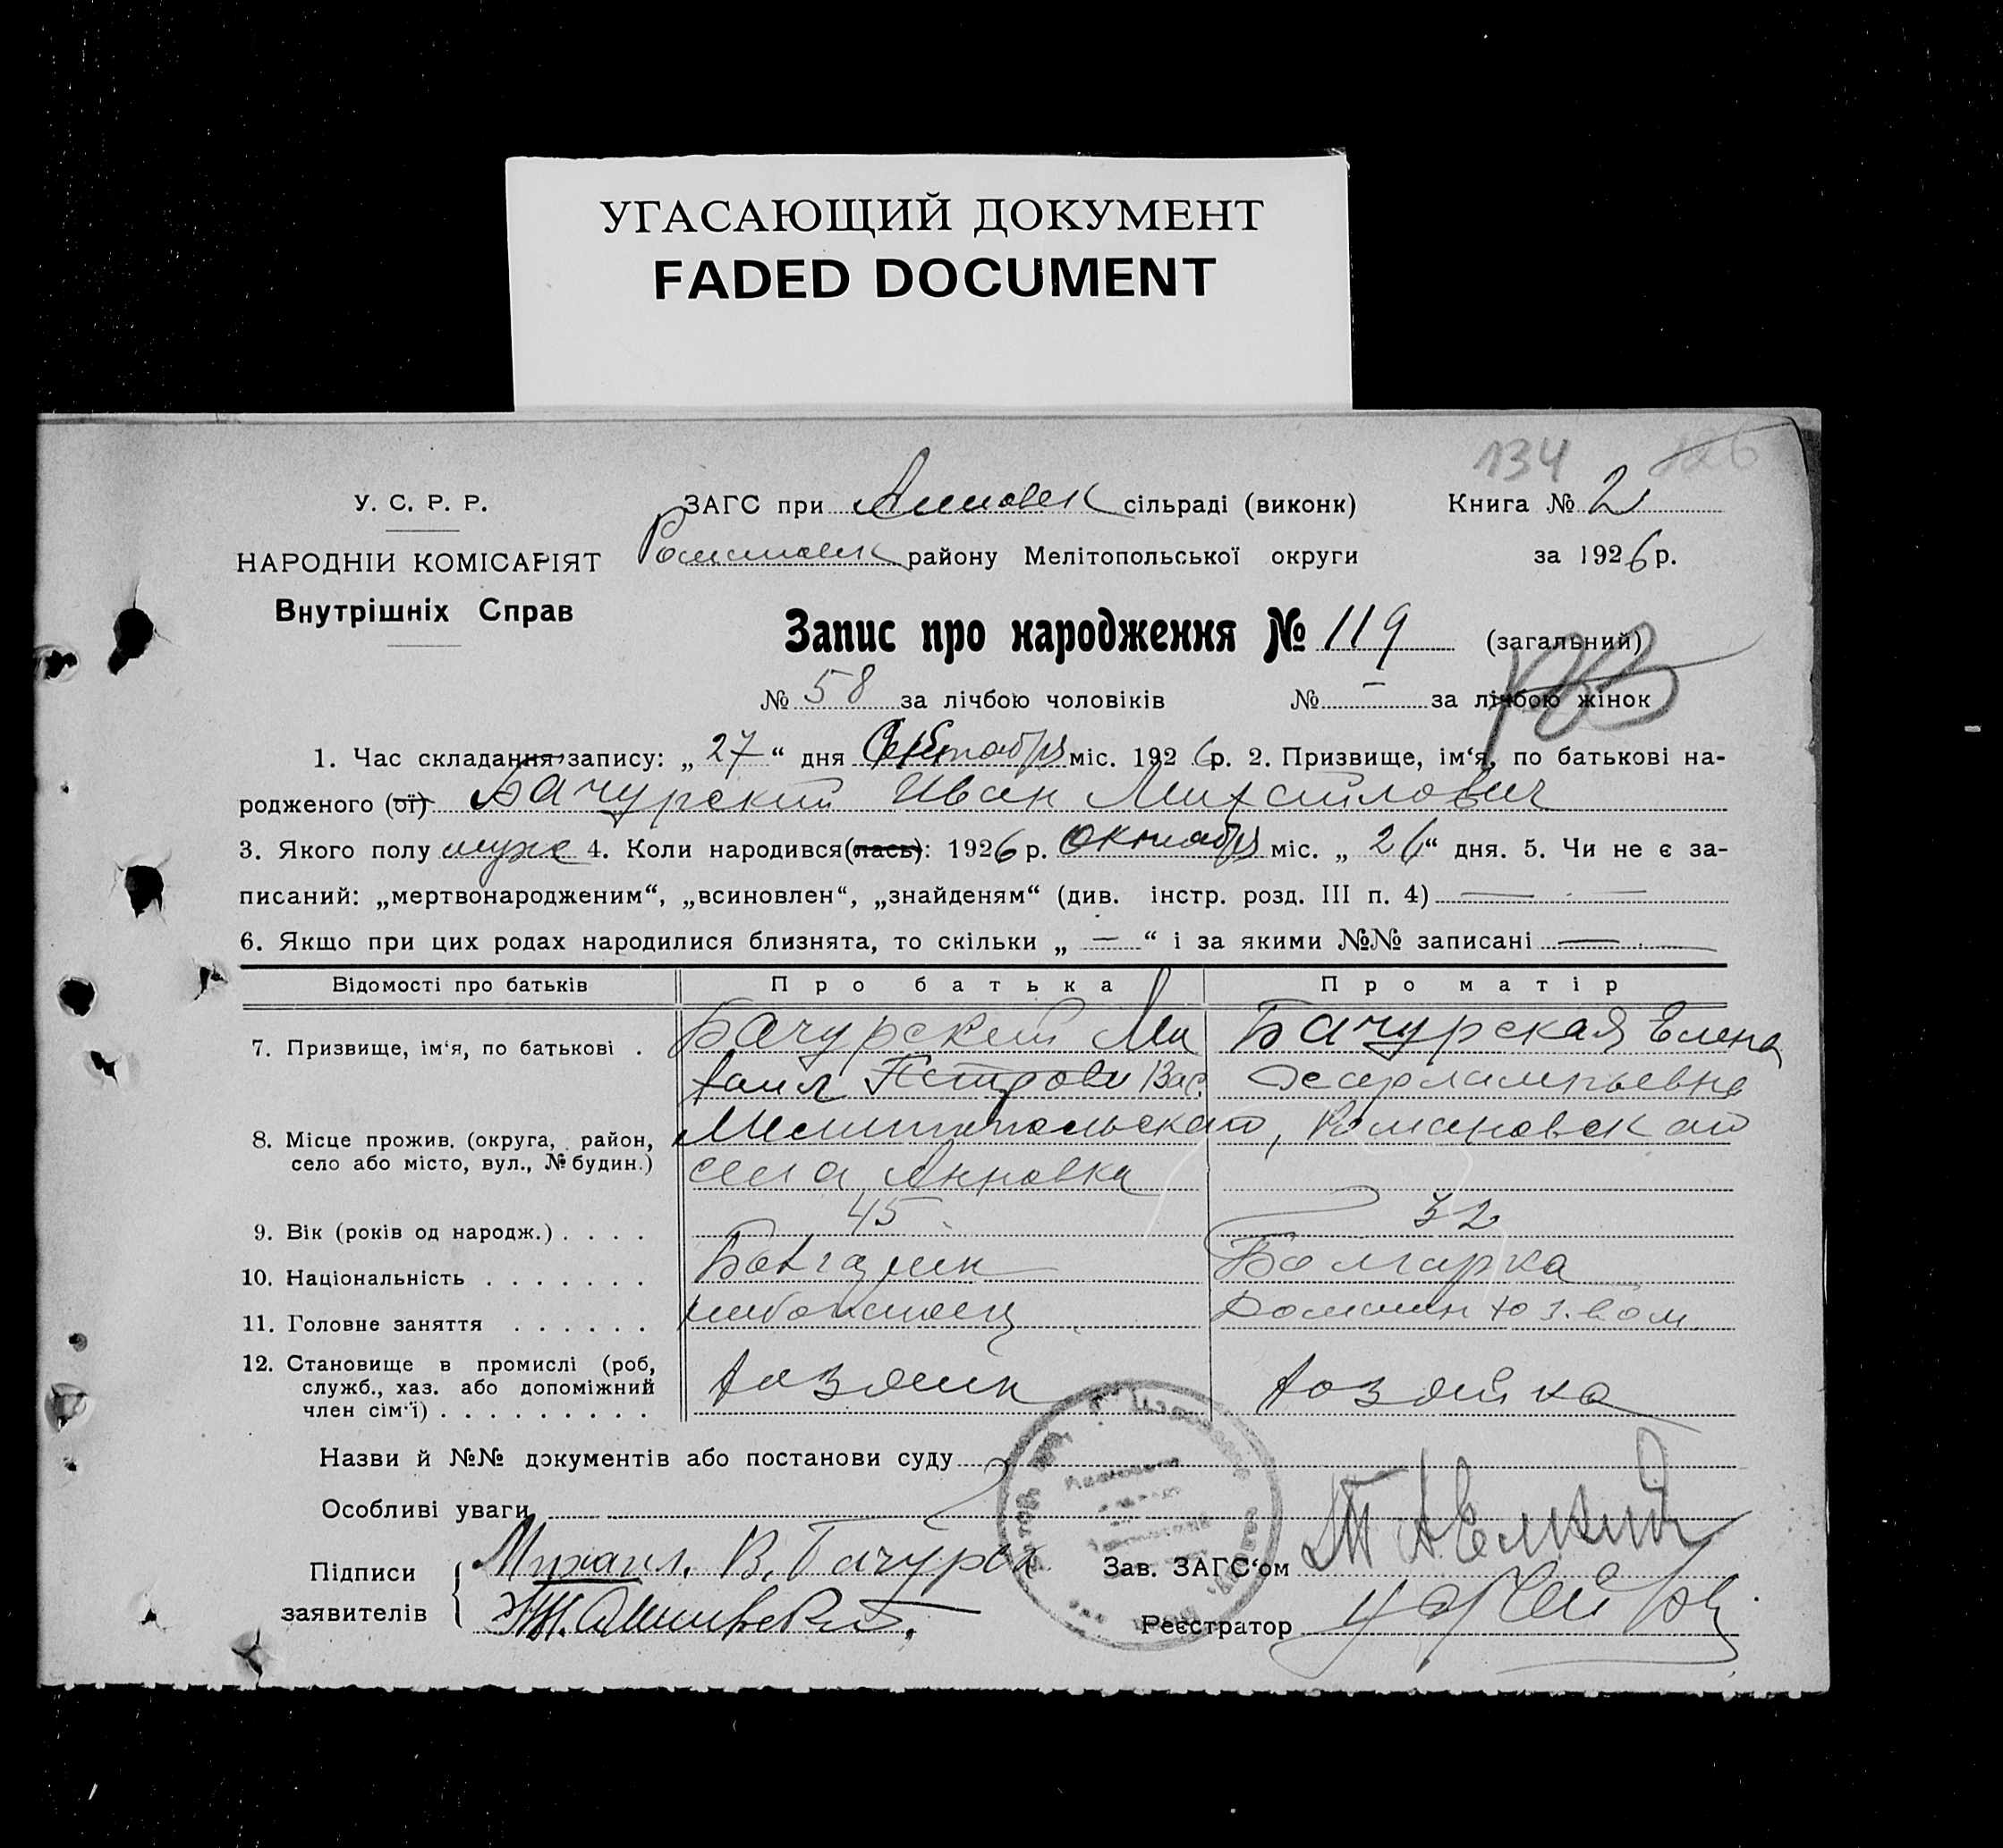 УГАСАЮЩИЙ ДОКУМЕНТ
FADED DOCUMENT
134 126
У. С. Р. Р.
ЗАГС при сільраді (виконк) Книга № 2
НАРОДНІЙ КОМІСАРІЯТ
району Мелітопольської округи за 1926 р.
Внутрішніх Справ
Запис про народження № 119 (загальний)
№ 58 за лічбою чоловіків № — за лічбою жінок
1. Час складання запису: „27“ дня міс. 1926 р. 2. Призвище, ім‘я, по батькові на-
родженого (ої) Бачурский Иван Михайлович
3. Якого полу муж 4. Коли народився(лась): 1926 р. Октября міс. „26“ дня. 5. Чи не є за-
писаний: „мертвонародженим“, „всиновлен“, „знайденям“ (див. інстр. розд. III п. 4) — —
6. Якщо при цих родах народилися близнята, то скільки „—“ і за якими №№ записані —
Відомості про батьків Про батька Про матір
7. Призвище, ім‘я, по батькові . Бачурский Ми Бачурская Елена
хаил Петрови Вас. Харлампьевна
8. Місце прожив. (округа, район, Мелитопольского, Романовского
село або місто, вул., № будин.) села Анновка
9. Вік (років од народж.) . . . . 45 32
10. Національність . . . . . . . Болгарин Болгарка
11. Головне заняття . . . . . . хлебопашец
12. Становище в промислі (роб, хозяин хозяйка
служб., хаз. або допоміжний
член сім‘ї) . . . . . . . . .
Назви й №№ документів або постанови суду
Особливі уваги
Підписи Михаил. В. Бачурск Зав. ЗАГС‘ом
заявителів Реєстратор